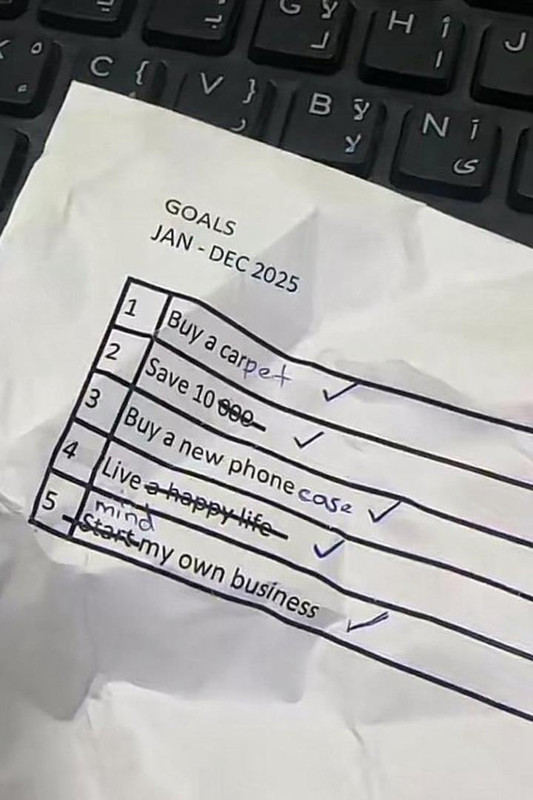 G لآ
لـ
H أ
ا
J
C {
V }
ر
B لآ
لا
N آ
ى
GOALS
JAN - DEC 2025
1 Buy a carpet ✓
2 Save 10 000 ✓
3 Buy a new phone case ✓
4 Live a happy life ✓
mind
5 Start my own business ✓